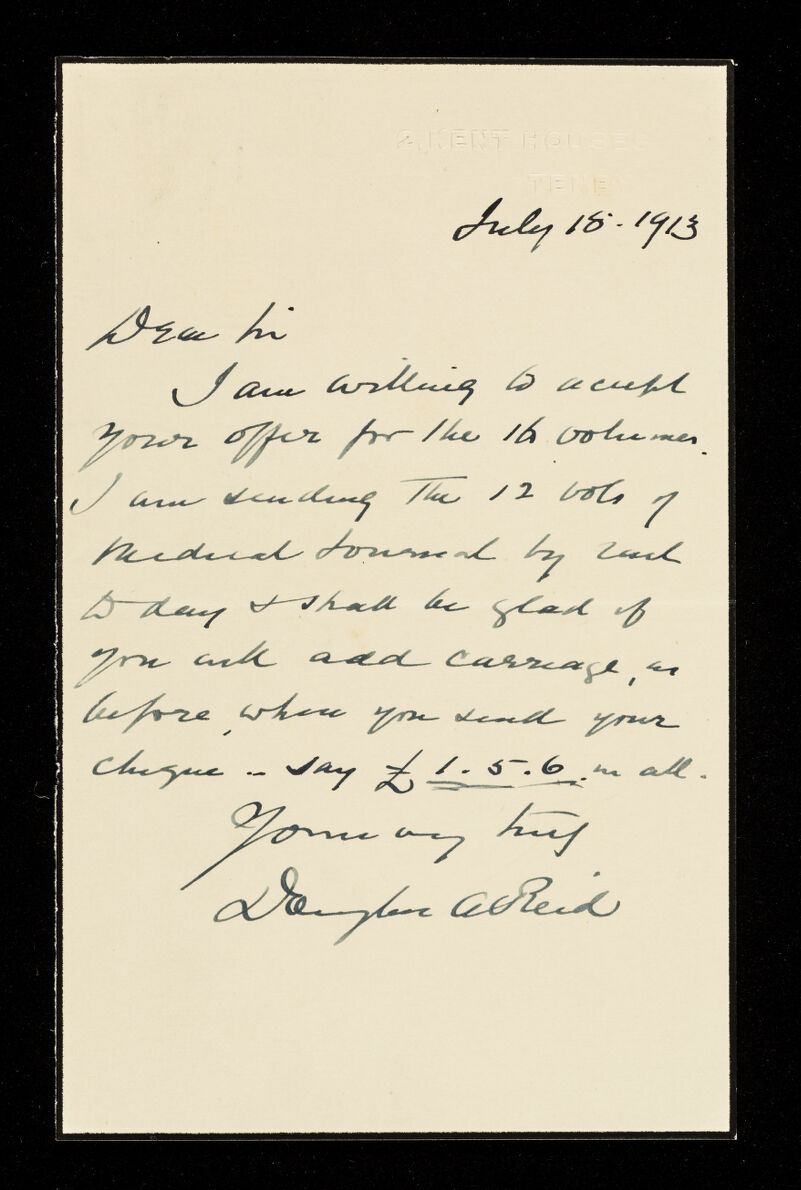 2, KENT HOUSES
TENBY
July 18. 1913
Dear Sir
I am willing to accept
your offer for the 16 volumes.
I am sending the 12 vols of
Medical Journal by rail
to day & shall be glad if
you will add carriage, as
before, when you send your
cheque .. say £1.5.6. in all.
Yours very truly
Douglas A Reid